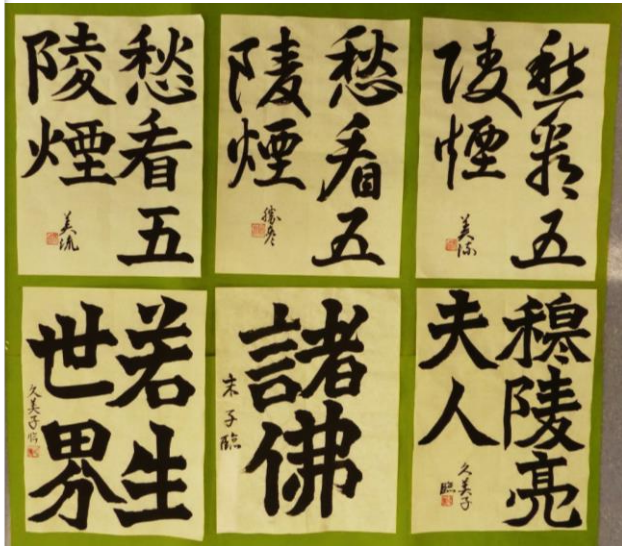 愁看五
陵煙
美流
愁看五
陵煙
勝彦
愁看五
陵煙
美流
若生
世界
久美子臨
諸佛
末子臨
穆陵亮
夫人
久美子
臨